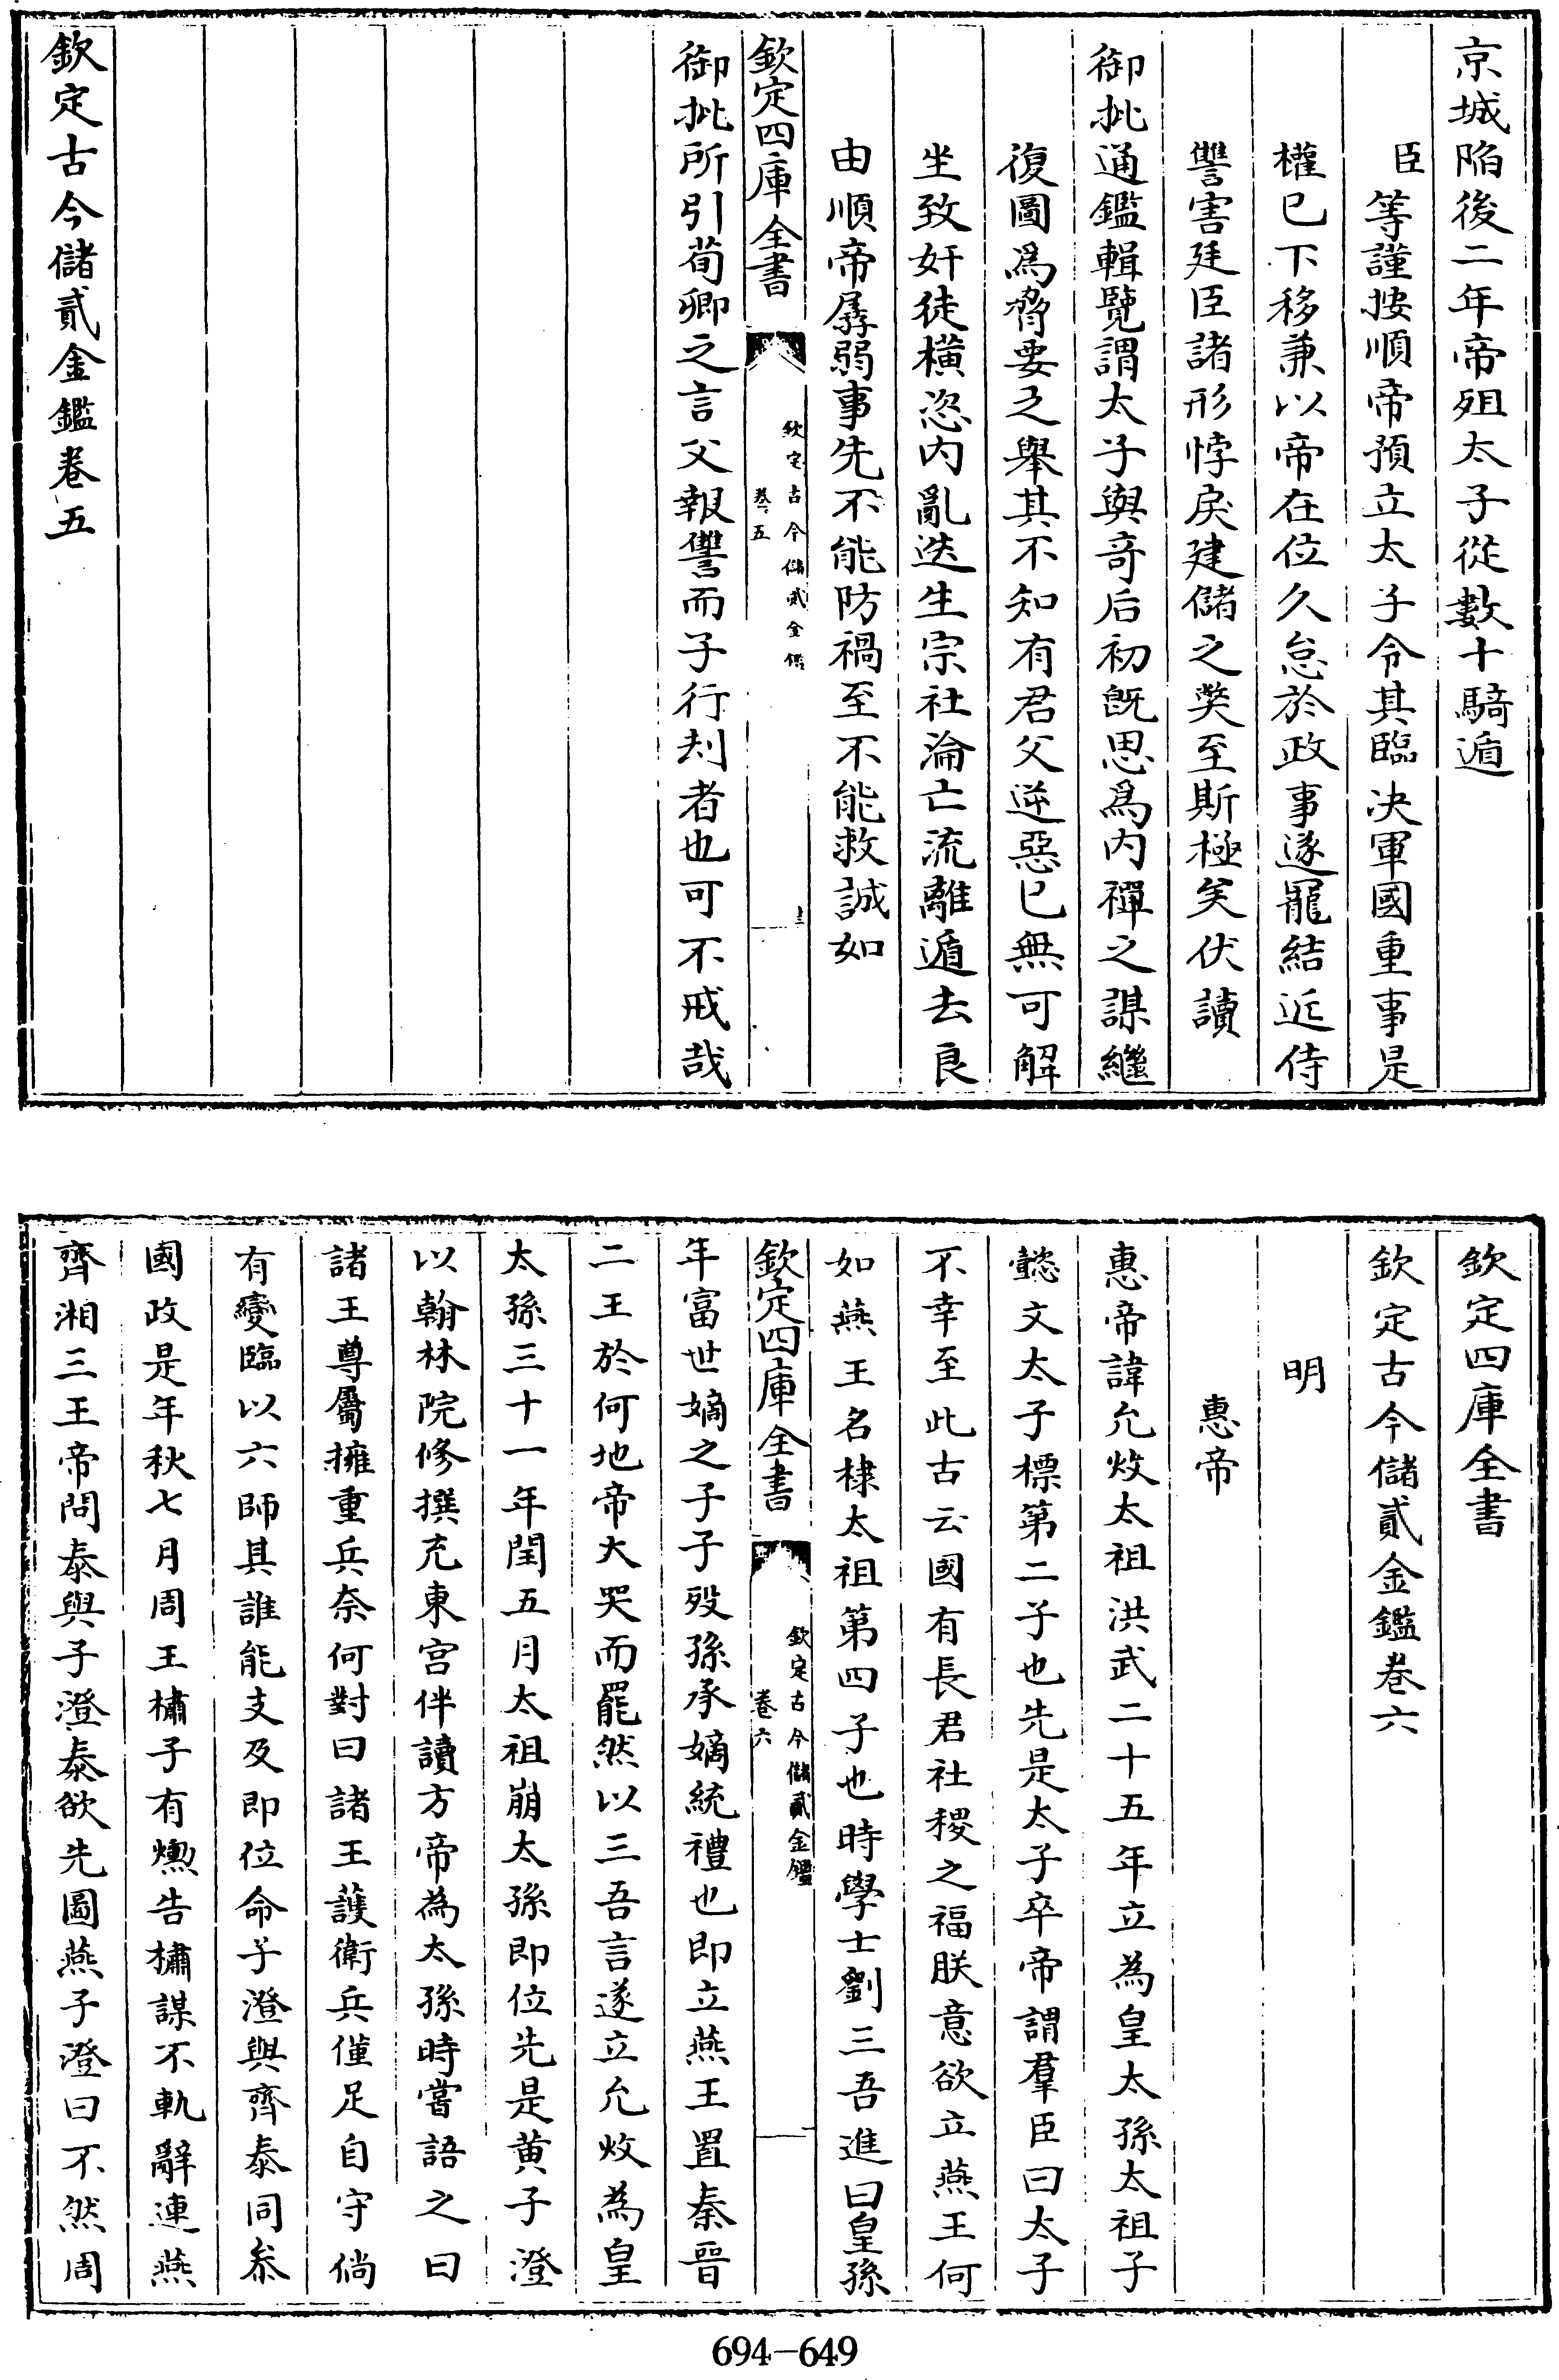 京城陷後二年帝殂太子從數十騎遁
臣等謹按順帝預立太子令其臨决軍國重事是
權已下移兼以帝在位久怠於政事遂寵結近侍
讐害廷臣諸形悖戾建儲之獘至斯極矣伏讀
御批通鑑輯覽謂太子與竒后初旣思爲内禪之謀繼
復圖爲脅要之舉其不知有君父逆惡已無可解
坐致奸徒橫恣内亂迭生宗社淪亡流離遁去良
由順帝孱弱事先不能防禍至不能救誠如
欽定四庫全書
欽定古今儲貳金鑑
卷五
十三
御批所引荀卿之言父報讐而子行刦者也可不戒哉
欽定古今儲貳金鑑卷五
欽定四庫全書
欽定古今儲貳金鑑卷六
明
惠帝
惠帝諱允炆太祖洪武二十五年立為皇太孫太祖子
懿文太子標第二子也先是太子卒帝謂羣臣曰太子
不幸至此古云國有長君社稷之福朕意欲立燕王何
如燕王名棣太祖第四子也時學士劉三吾進曰皇孫
欽定四庫全書
欽定古今儲貳金鑑
卷六
一
年富世嫡之子子殁孫承嫡統禮也即立燕王置秦晉
二王於何地帝大哭而罷然以三吾言遂立允炆為皇
太孫三十一年閏五月太祖崩太孫即位先是黄子澄
以翰林院修撰充東宫伴讀方帝為太孫時嘗語之曰
諸王尊屬擁重兵奈何對曰諸王護衛兵僅足自守倘
有變臨以六師其誰能支及即位命子澄與齊泰同叅
國政是年秋七月周王橚子有爋告橚謀不軌辭連燕
齊湘三王帝問泰與子澄泰欲先圖燕子澄曰不然周
694-649